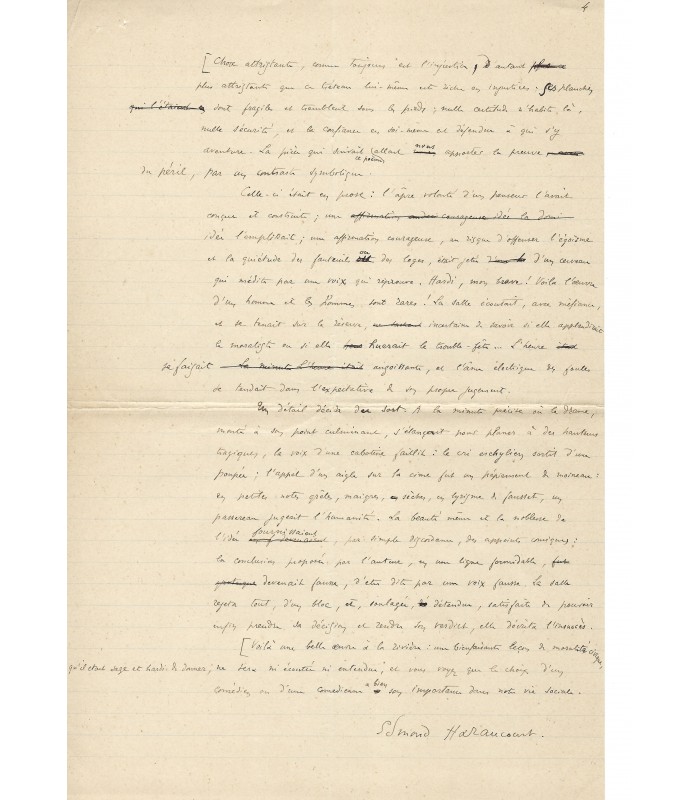 4
[Chose attristante, comme toujours est l'injustice, et d'autant
plus attristante que ce tréteau lui-même est riche en injustices : ses planches
sont fragiles et tremblent sous les pieds ; nulle certitude n'habite là,
nulle sécurité, et la confiance en soi-même est défendue à qui s'y
aventure. La pièce qui suivait allait nous apporter la preuve
du péril, par un contraste symbolique.
Celle-ci était en prose : l'âpre volonté d'un penseur l'avait
conçue et construite ; une
idée l'emplissait ; une affirmation courageuse, au risque d'offenser l'égoïsme
et la quiétude des fauteuils ou des loges, était jetée d'un cerveau
qui médite par une voix qui réprouve. Hardi, mon brave ! Voilà l'œuvre
d'un homme et les hommes sont rares ! La salle écoutait, avec méfiance,
et se tenait sur la réserve, incertaine de savoir si elle applaudirait
le moraliste ou si elle huerait le trouble-fête... L'heure
se faisait angoissante, et l'âme électrique des foules
se tendait dans l'expectative de son propre jugement.
Un détail décida du sort. A la minute précise où le drame,
monté à son point culminant, s'élançait pour planer à des hauteurs
tragiques, la voix d'une cabotine faillit : le cri eschylien sortit d'une
poupée ; l'appel d'un aigle sur la cime fut un pépiement de moineau :
en petites notes grêles, maigres, sèches, en of fausset, un
passereau jugeait l'humanité. La beauté même et la noblesse de
l'idée fournissaient, par simple discordance, des appoints comiques ;
la conclusion proposée par l'auteur, en une ligne formidable,
devenait fausse, d'être dite par une voix fausse. La salle
rejeta tout, d'un bloc, et, soulagée, détendue, satisfaite de pouvoir
enfin prendre sa décision et rendre son verdict, elle décréta l'insuccès.
[Voilà une belle œuvre à la rivière : une bienfaisante leçon de moralité civique,
qu'il était sage et hardi de donner, ne sera ni écoutée ni entendue, et vous voyez que le choix d'un
comédien ou d'une comédienne a bien son importance dans notre vie sociale.
Edmond Haraucourt.